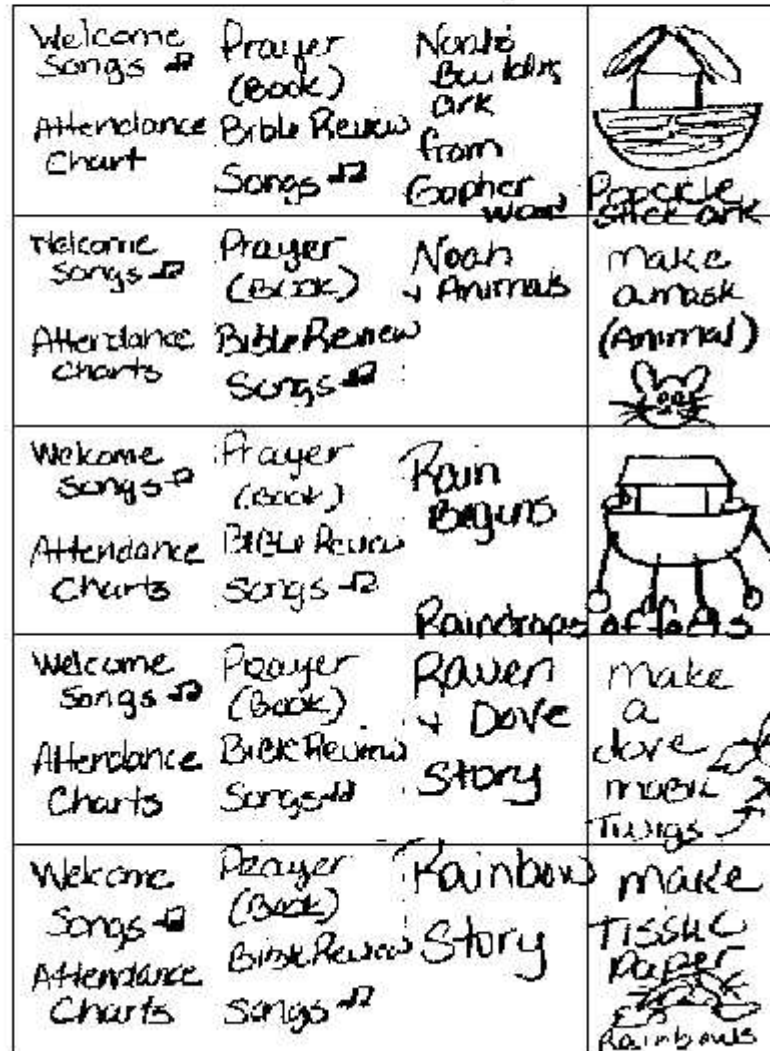 Welcome
Songs ♫
Attendance
Chart
Prayer
(Book)
Bible Review
Songs ♫
Building
ark
from
Gopher
wood
Popcicle
stick ark
Welcome
Songs ♫
Attendance
Charts
Prayer
(Book)
Bible Review
Songs ♫
Noah
+ Animals
make
a mask
(Animal)
Welcome
Songs ♫
Attendance
Charts
Prayer
(Book)
Bible Review
Songs ♫
Rain
Begins
Raindrops of foils
Welcome
Songs ♫
Attendance
Charts
Prayer
(Book)
Bible Review
Songs ♫
Raven
+ Dove
Story
make
a
dove
Twigs
Welcome
Songs ♫
Attendance
Charts
Prayer
(Book)
Bible Review
Songs ♫
Rainbow
Story
make
Tissue
paper
Rainbows